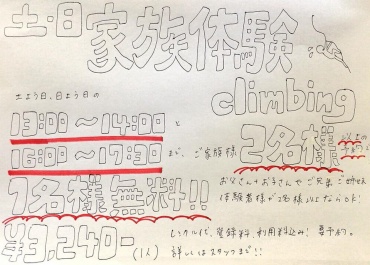 土・日 家族体験
climbing
土よう日、日よう日の
13:00 〜14:00 と
16:00 〜17:30 まで、ご家族様 2名様 以上の予約で
1名様無料!!
お父さん+お子さんや ご兄弟 ご姉妹
体験者様が2名様以上ならOK!
¥3,240- (1人)
レンタル代、登録料、利用料込み! 要予約。
詳しくはスタッフまで!!